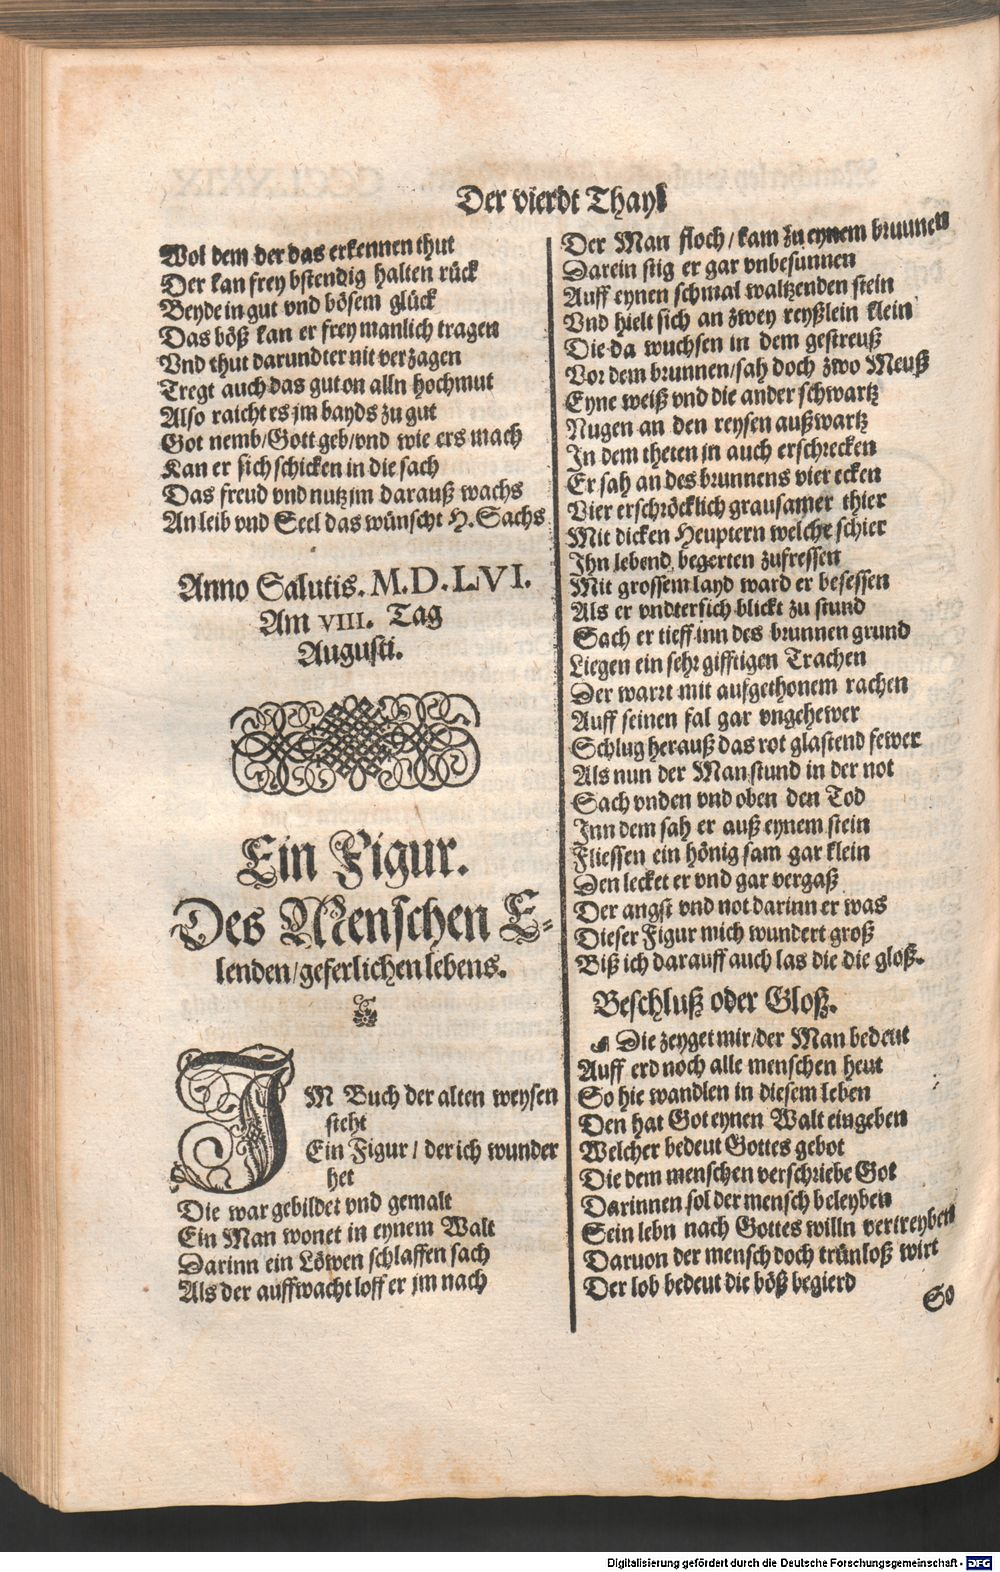 Der vierdt Thayl
Wol dem der das erkennen thut
Der kan frey bstendig halten rück
Beyde in gut vnd bösem glück
Das böß kan er frey manlich tragen
Vnd thut darundter nit verzagen
Tregt auch das gut on alln hochmut
Also raicht es jm bayds zu gut
Got nemb/Gott geb/vnd wie ers mach
Kan er sich schicken in die sach
Das freud vnd nutz jm darauß wachs
An leib vnd Seel das wünscht H. Sachs
Anno Salutis. M.D.LVI.
Am VIII. Tag
Augusti.
Ein Figur.
Des Menschen E-
lenden/geferlichen lebens.
IM Buch der alten weysen
steht
Ein Figur / der ich wunder
het
Die war gebildet vnd gemalt
Ein Man wonet in eynem Walt
Darinn ein Löwen schlaffen sach
Als der auffwacht loff er jm nach
Der Man floch/kam zu eynem brunnen
Darein stig er gar vnbesunnen
Auff eynen schmal waltzenden stein
Vnd hielt sich an zwey reyßlein klein
Die da wuchsen in dem gestreuß
Vor dem brunnen/sah doch zwo Meuß
Eyne weiß vnd die ander schwartz
Nugen an den reysen außwartz
In dem theten in auch erschrecken
Er sah an des brunnens vier ecken
Vier erschröcklich grausamer thier
Mit dicken Heuptern welche schier
Ihn lebend begerten zufressen
Mit grossem layd ward er besessen
Als er vndtersich blickt zu stund
Sach er tieff inn des brunnen grund
Liegen ein sehr gifftigen Trachen
Der warrt mit aufgethonem rachen
Auff seinen fal gar vngehewer
Schlug herauß das rot glastend fewer
Als nun der Man stund in der not
Sach vnden vnd oben den Tod
Inn dem sah er auß eynem stein
Fliessen ein hönig sam gar klein
Den lecket er vnd gar vergaß
Der angst vnd not darinn er was
Dieser Figur mich wundert groß
Biß ich darauff auch las die die gloß.
Beschluß oder Gloß.
Die zeyget mir/der Man bedeut
Auff erd noch alle menschen heut
So hie wandlen in diesem leben
Den hat Got eynen Walt eingeben
Welcher bedeut Gottes gebot
Die dem menschen verschriebe Got
Darinnen sol der mensch beleyben
Sein lebn nach Gottes willn vertreyben
Daruon der mensch doch trünloß wirt
Der lob bedeut die böß begierd
So
Digitalisierung gefördert durch die Deutsche Forschungsgemeinschaft - DFG